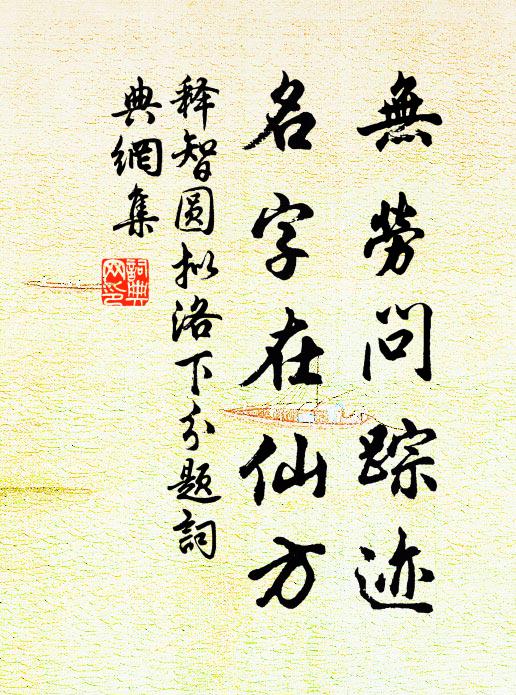 無勞問踪迹
名字在仙方
释智圆拟洛下分题詞
典網集
詞典
网印